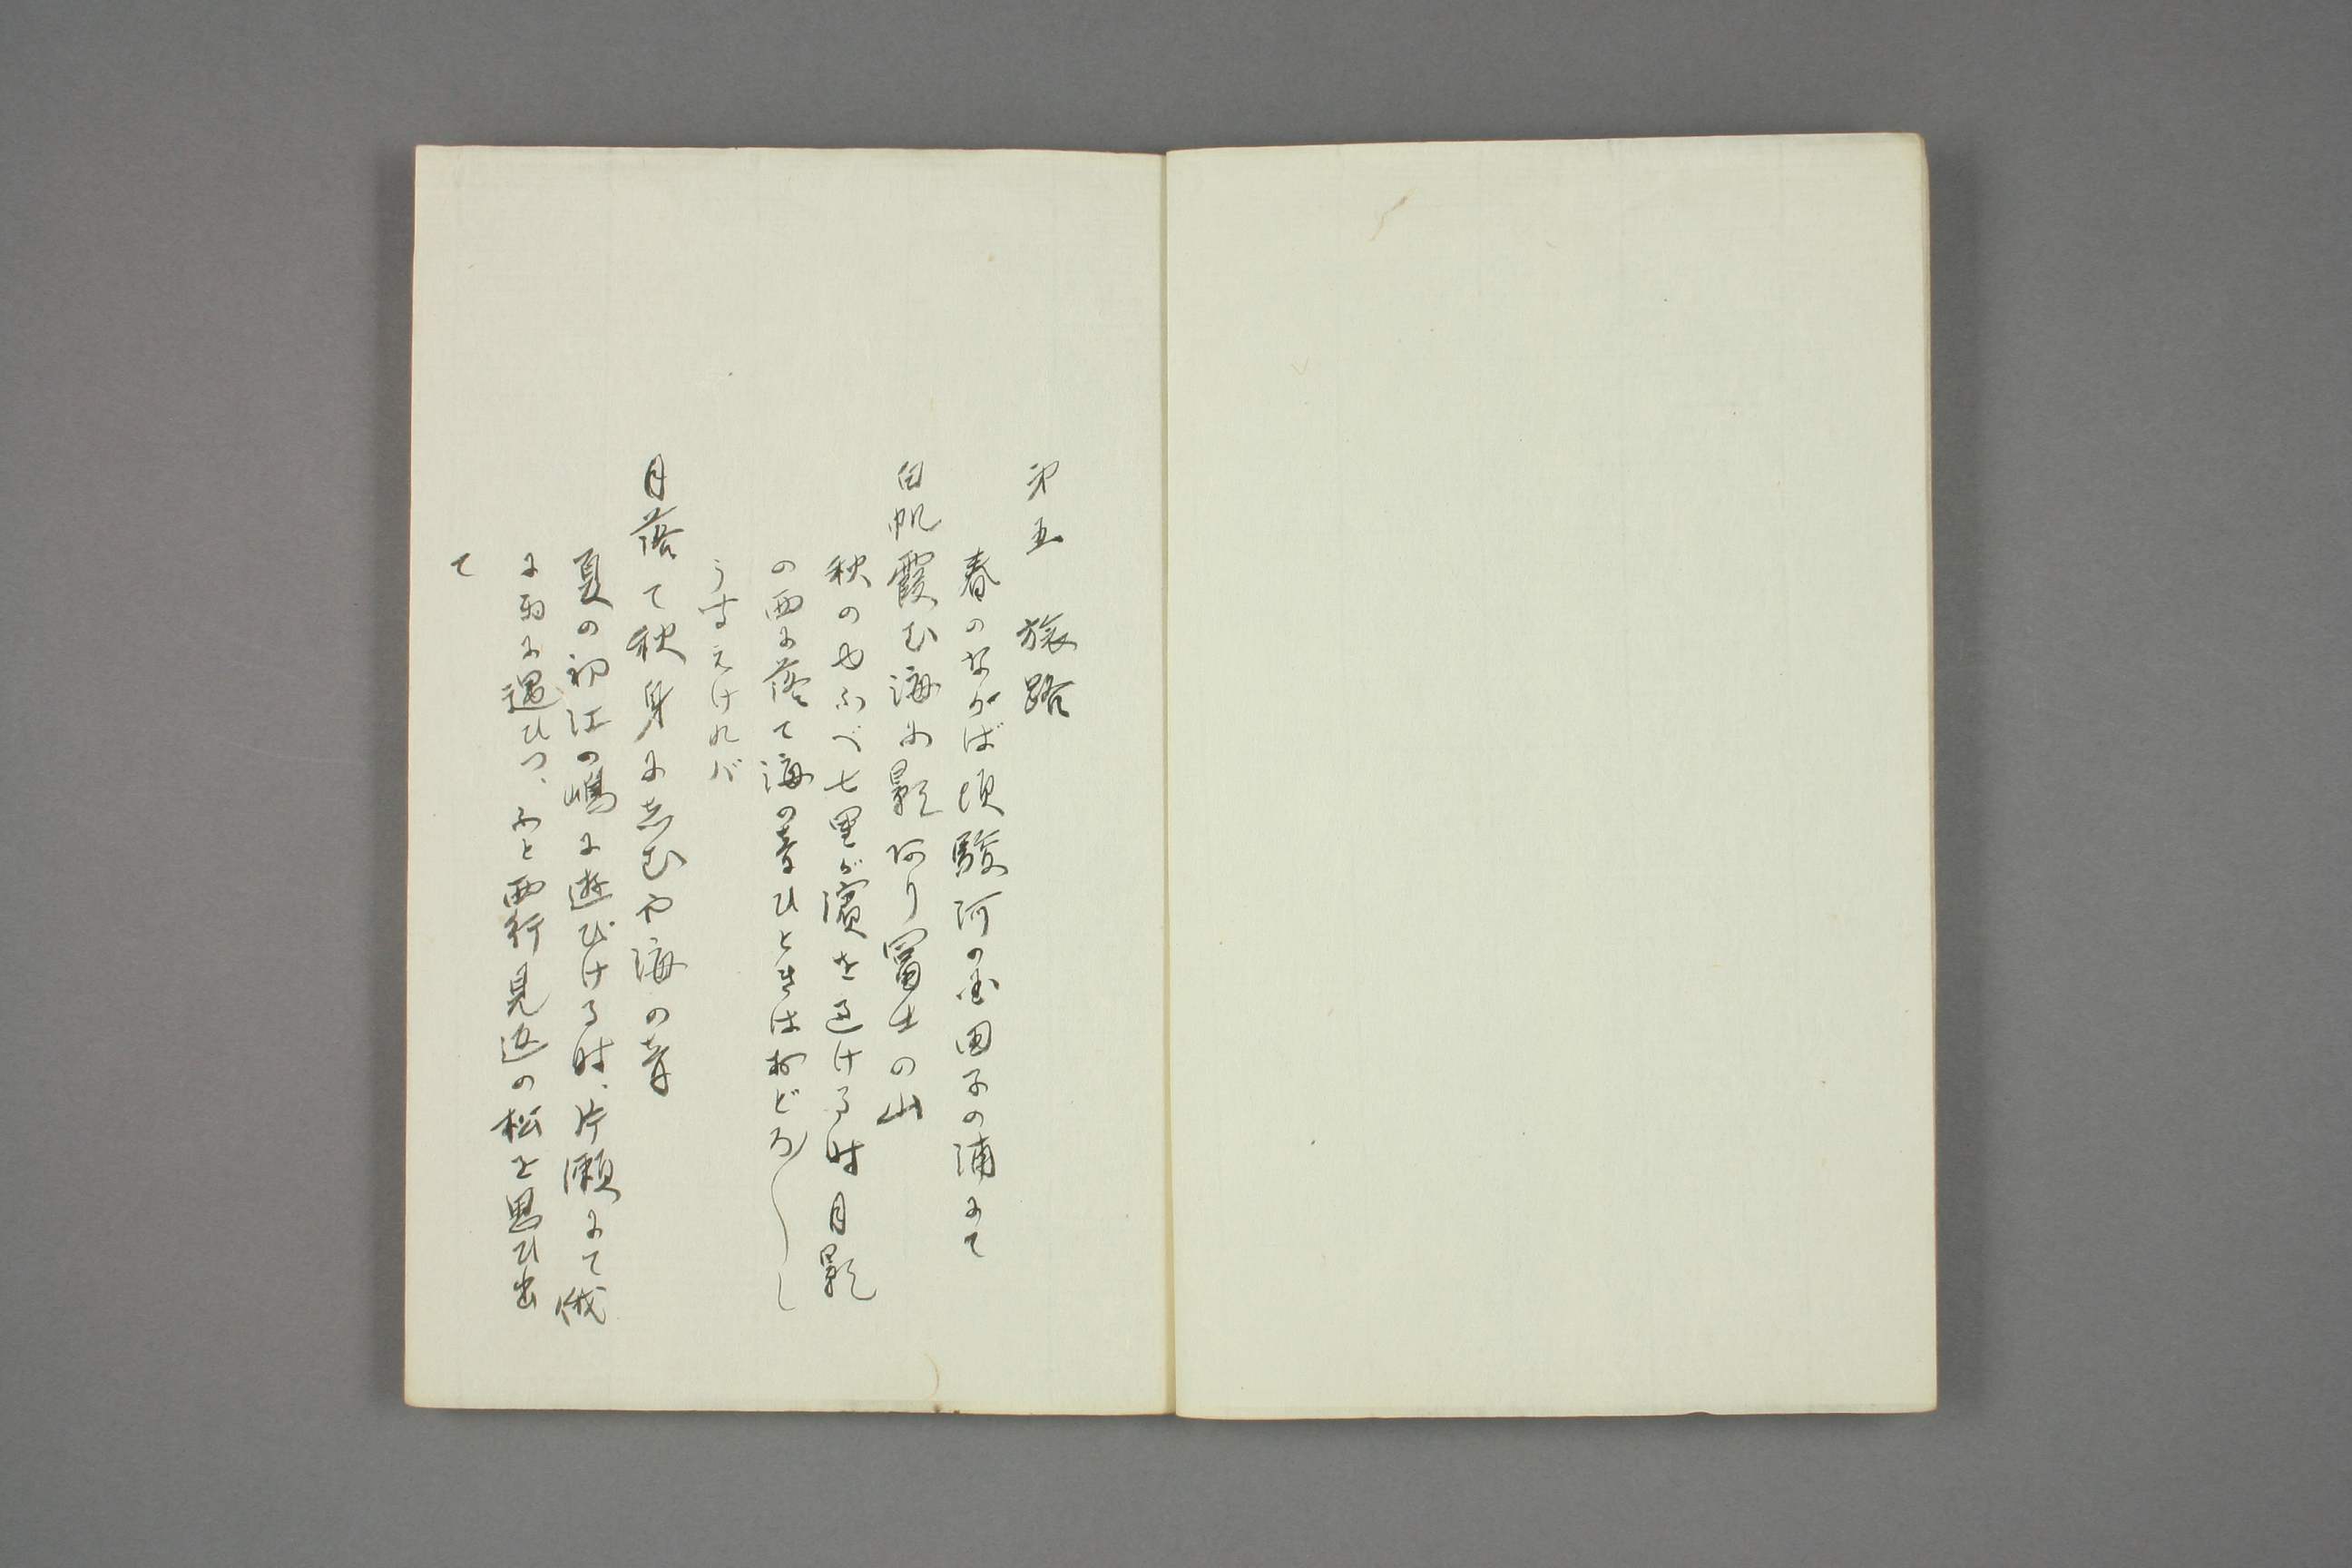 第五　旅路
春のなかば頃駿河の国田子の浦にて
白帆霞む海に影あり冨士の山
秋のゆふべ七里が濱を過ける時月影
の西に落て海の音ひときはおどろ〳〵し
う聞えければ
月落て秋身にしむや海の音
夏の初江の嶋に遊びける時、片瀬にて俄
に雨に遇ひつゝふと西行見返の松を思ひ出
て